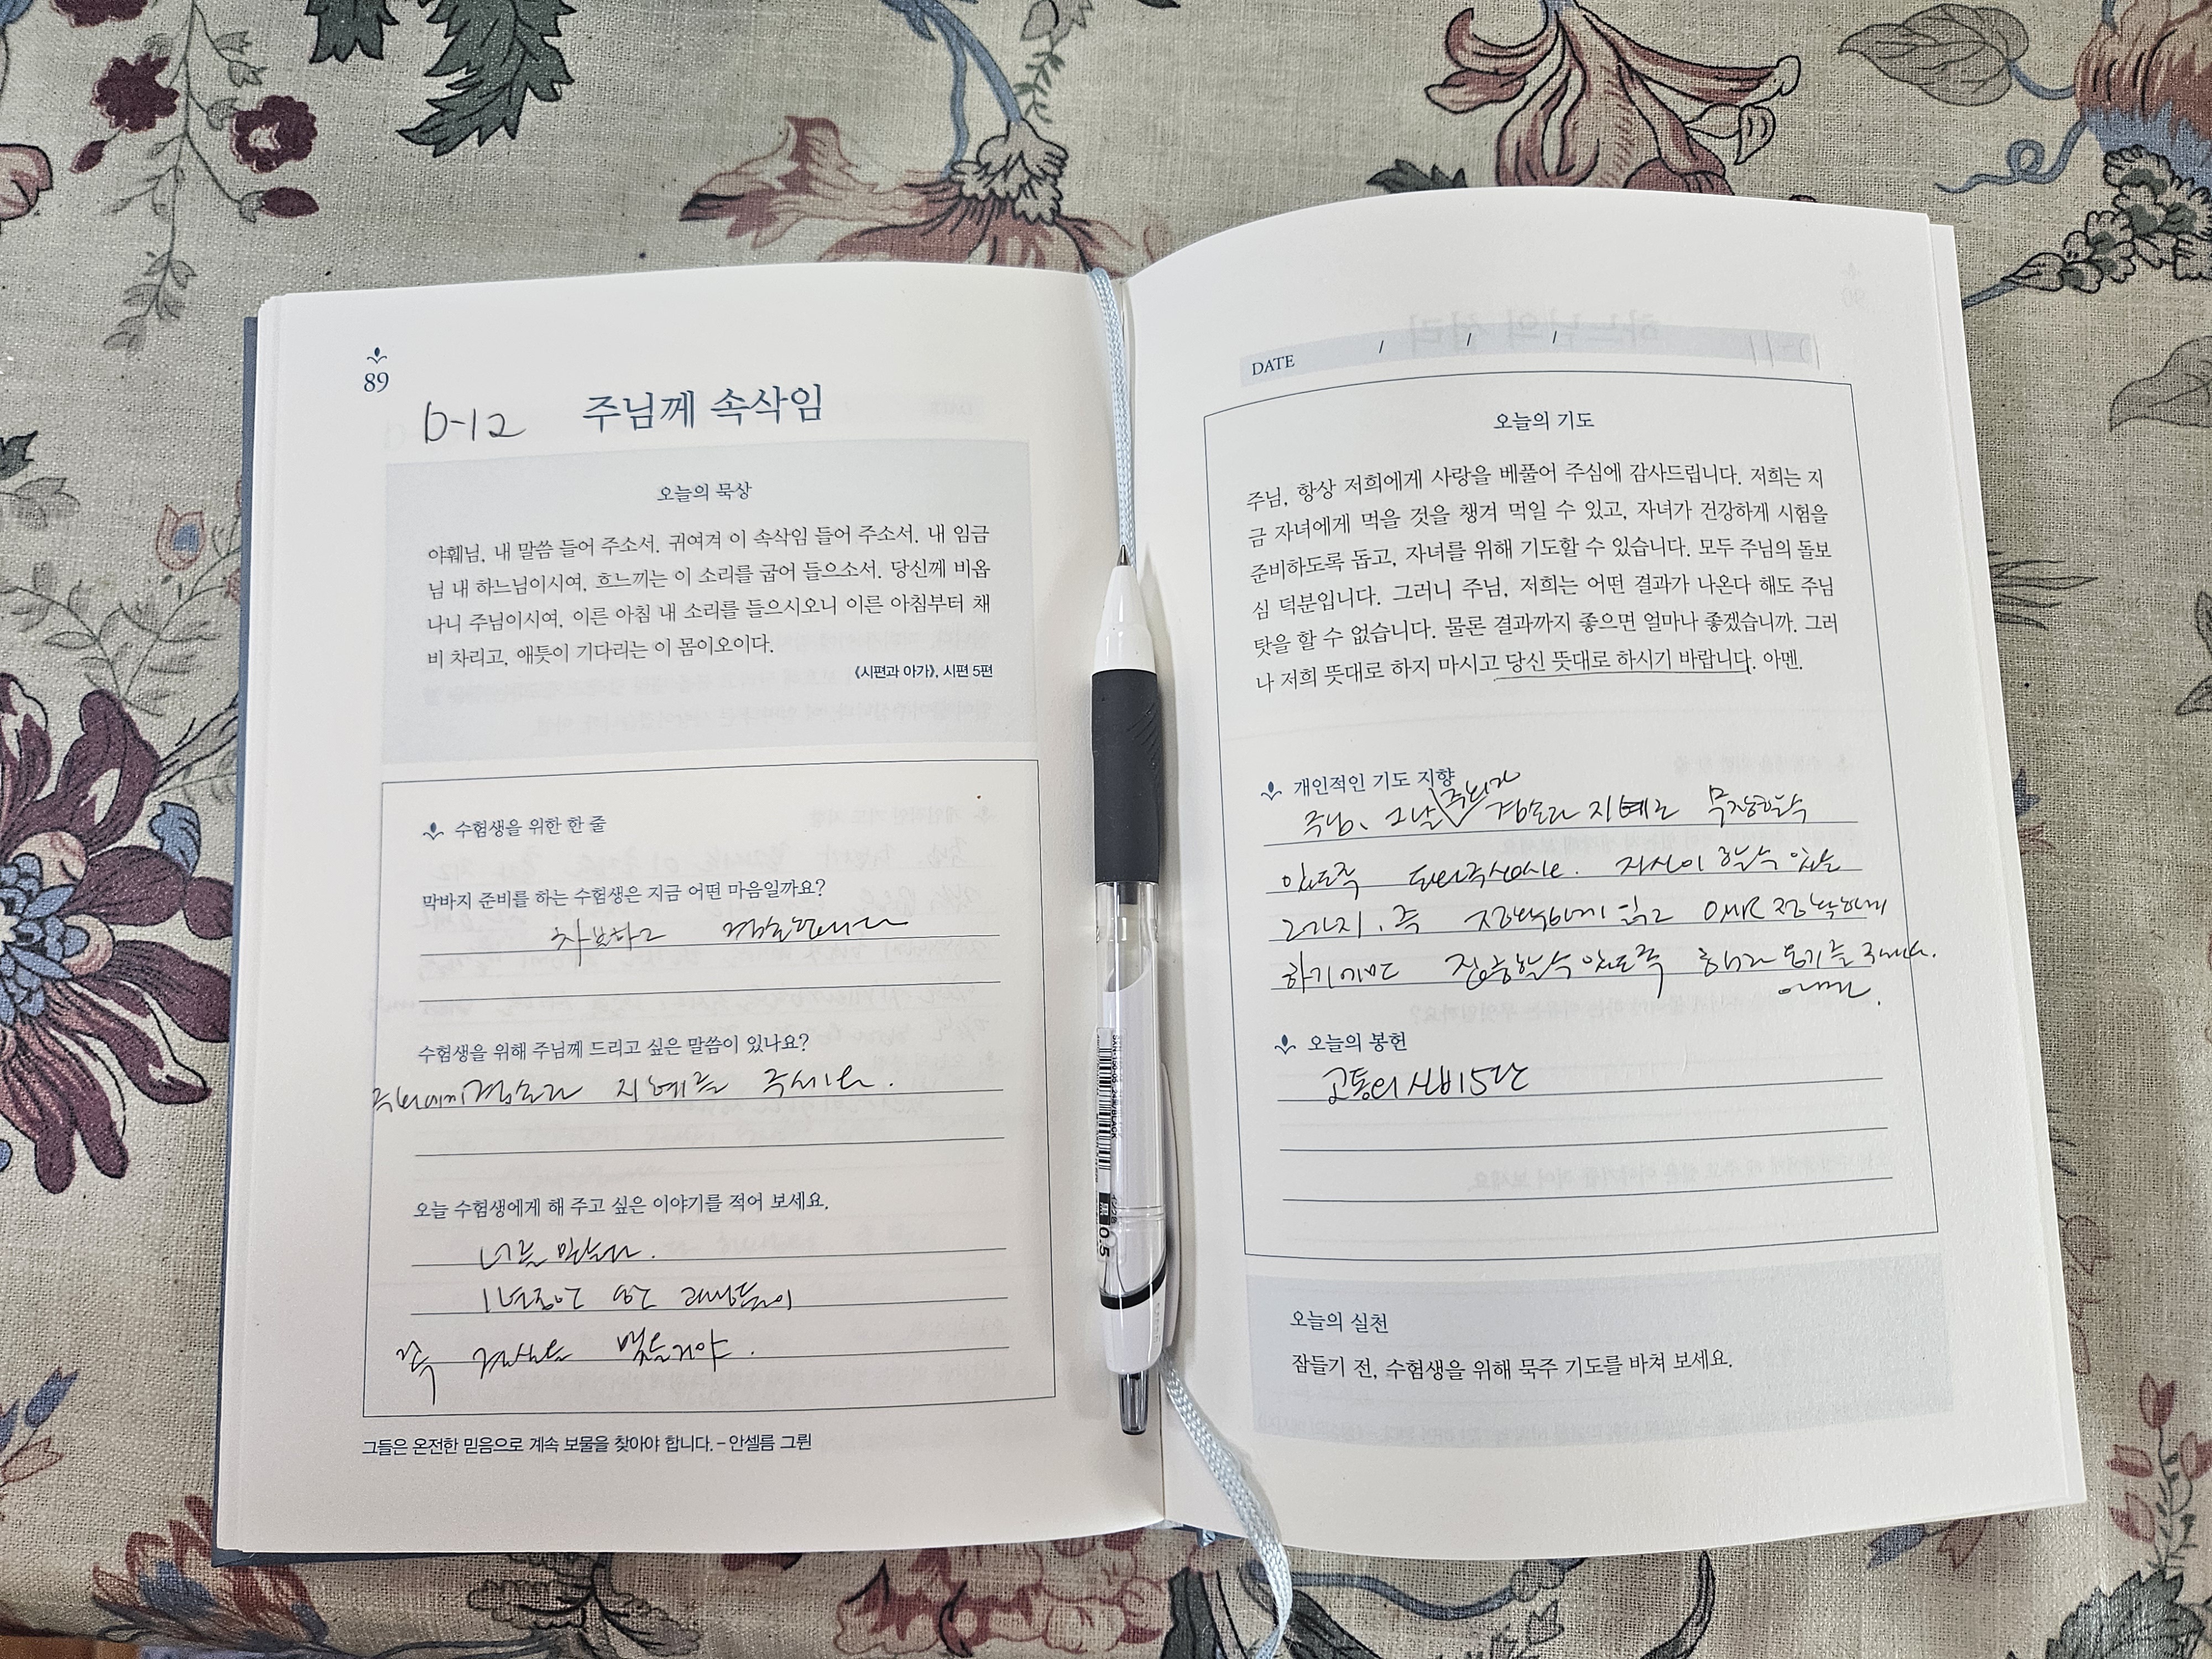 89
D-12
주님께 속삭임
오늘의 묵상
야훼님, 내 말씀 들어 주소서. 귀여겨 이 속삭임 들어 주소서. 내 임금
님 내 하느님이시여, 흐느끼는 이 소리를 굽어 들으소서. 당신께 비옵
나니 주님이시여, 이른 아침 내 소리를 들으시오니 이른 아침부터 채
비 차리고, 애틋이 기다리는 이 몸이오이다.
《시편과 아가》, 시편 5편
수험생을 위한 한 줄
막바지 준비를 하는 수험생은 지금 어떤 마음일까요?
차분하고
수험생을 위해 주님께 드리고 싶은 말씀이 있나요?
지혜를 주세요.
오늘 수험생에게 해 주고 싶은 이야기를 적어 보세요.
너를 믿는다.
1년동안
꼭 결실을 맺을거야.
그들은 온전한 믿음으로 계속 보물을 찾아야 합니다. – 안셀름 그륀
DATE / / /
오늘의 기도
주님, 항상 저희에게 사랑을 베풀어 주심에 감사드립니다. 저희는 지
금 자녀에게 먹을 것을 챙겨 먹일 수 있고, 자녀가 건강하게 시험을
준비하도록 돕고, 자녀를 위해 기도할 수 있습니다. 모두 주님의 돌보
심 덕분입니다. 그러니 주님, 저희는 어떤 결과가 나온다 해도 주님
탓을 할 수 없습니다. 물론 결과까지 좋으면 얼마나 좋겠습니까. 그러
나 저희 뜻대로 하지 마시고 당신 뜻대로 하시기 바랍니다. 아멘.
개인적인 기도 지향
주님, 그날 겸손과 지혜로 무장할수
있도록 도와주십시오. 자신이 할수 있는
2가지, 즉 정확하게 읽고 OMR 정확하게
하기에만 집중할수 있도록 용기를 주세요.
아멘.
오늘의 봉헌
고통의 신비 5단
오늘의 실천
잠들기 전, 수험생을 위해 묵주 기도를 바쳐 보세요.
0.5